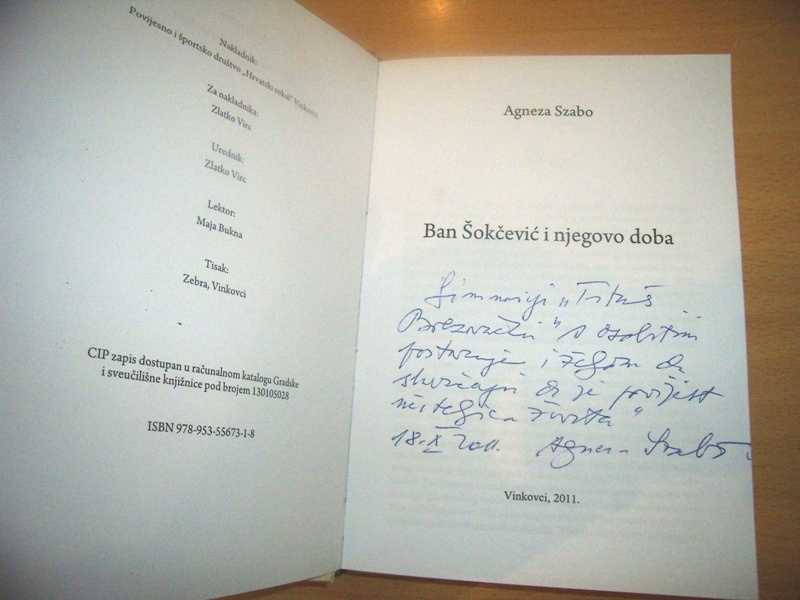 Nakladnik:
Povijesno i športsko društvo „Hrvatski sokol" Vinkovci
Za nakladnika:
Zlatko Virc
Urednik:
Zlatko Virc
Lektor:
Maja Bukna
Tisak:
Zebra, Vinkovci
CIP zapis dostupan u računalnom katalogu Gradske
i sveučilišne knjižnice pod brojem 130105028
ISBN 978-953-55673-1-8
Agneza Szabo
Ban Šokčević i njegovo doba
Gimnaziji „Tituš
Brezovački" s osobitim
i željom da
da je povijest
učiteljica života"
18. X 2011. Agneza Szabo
Vinkovci, 2011.